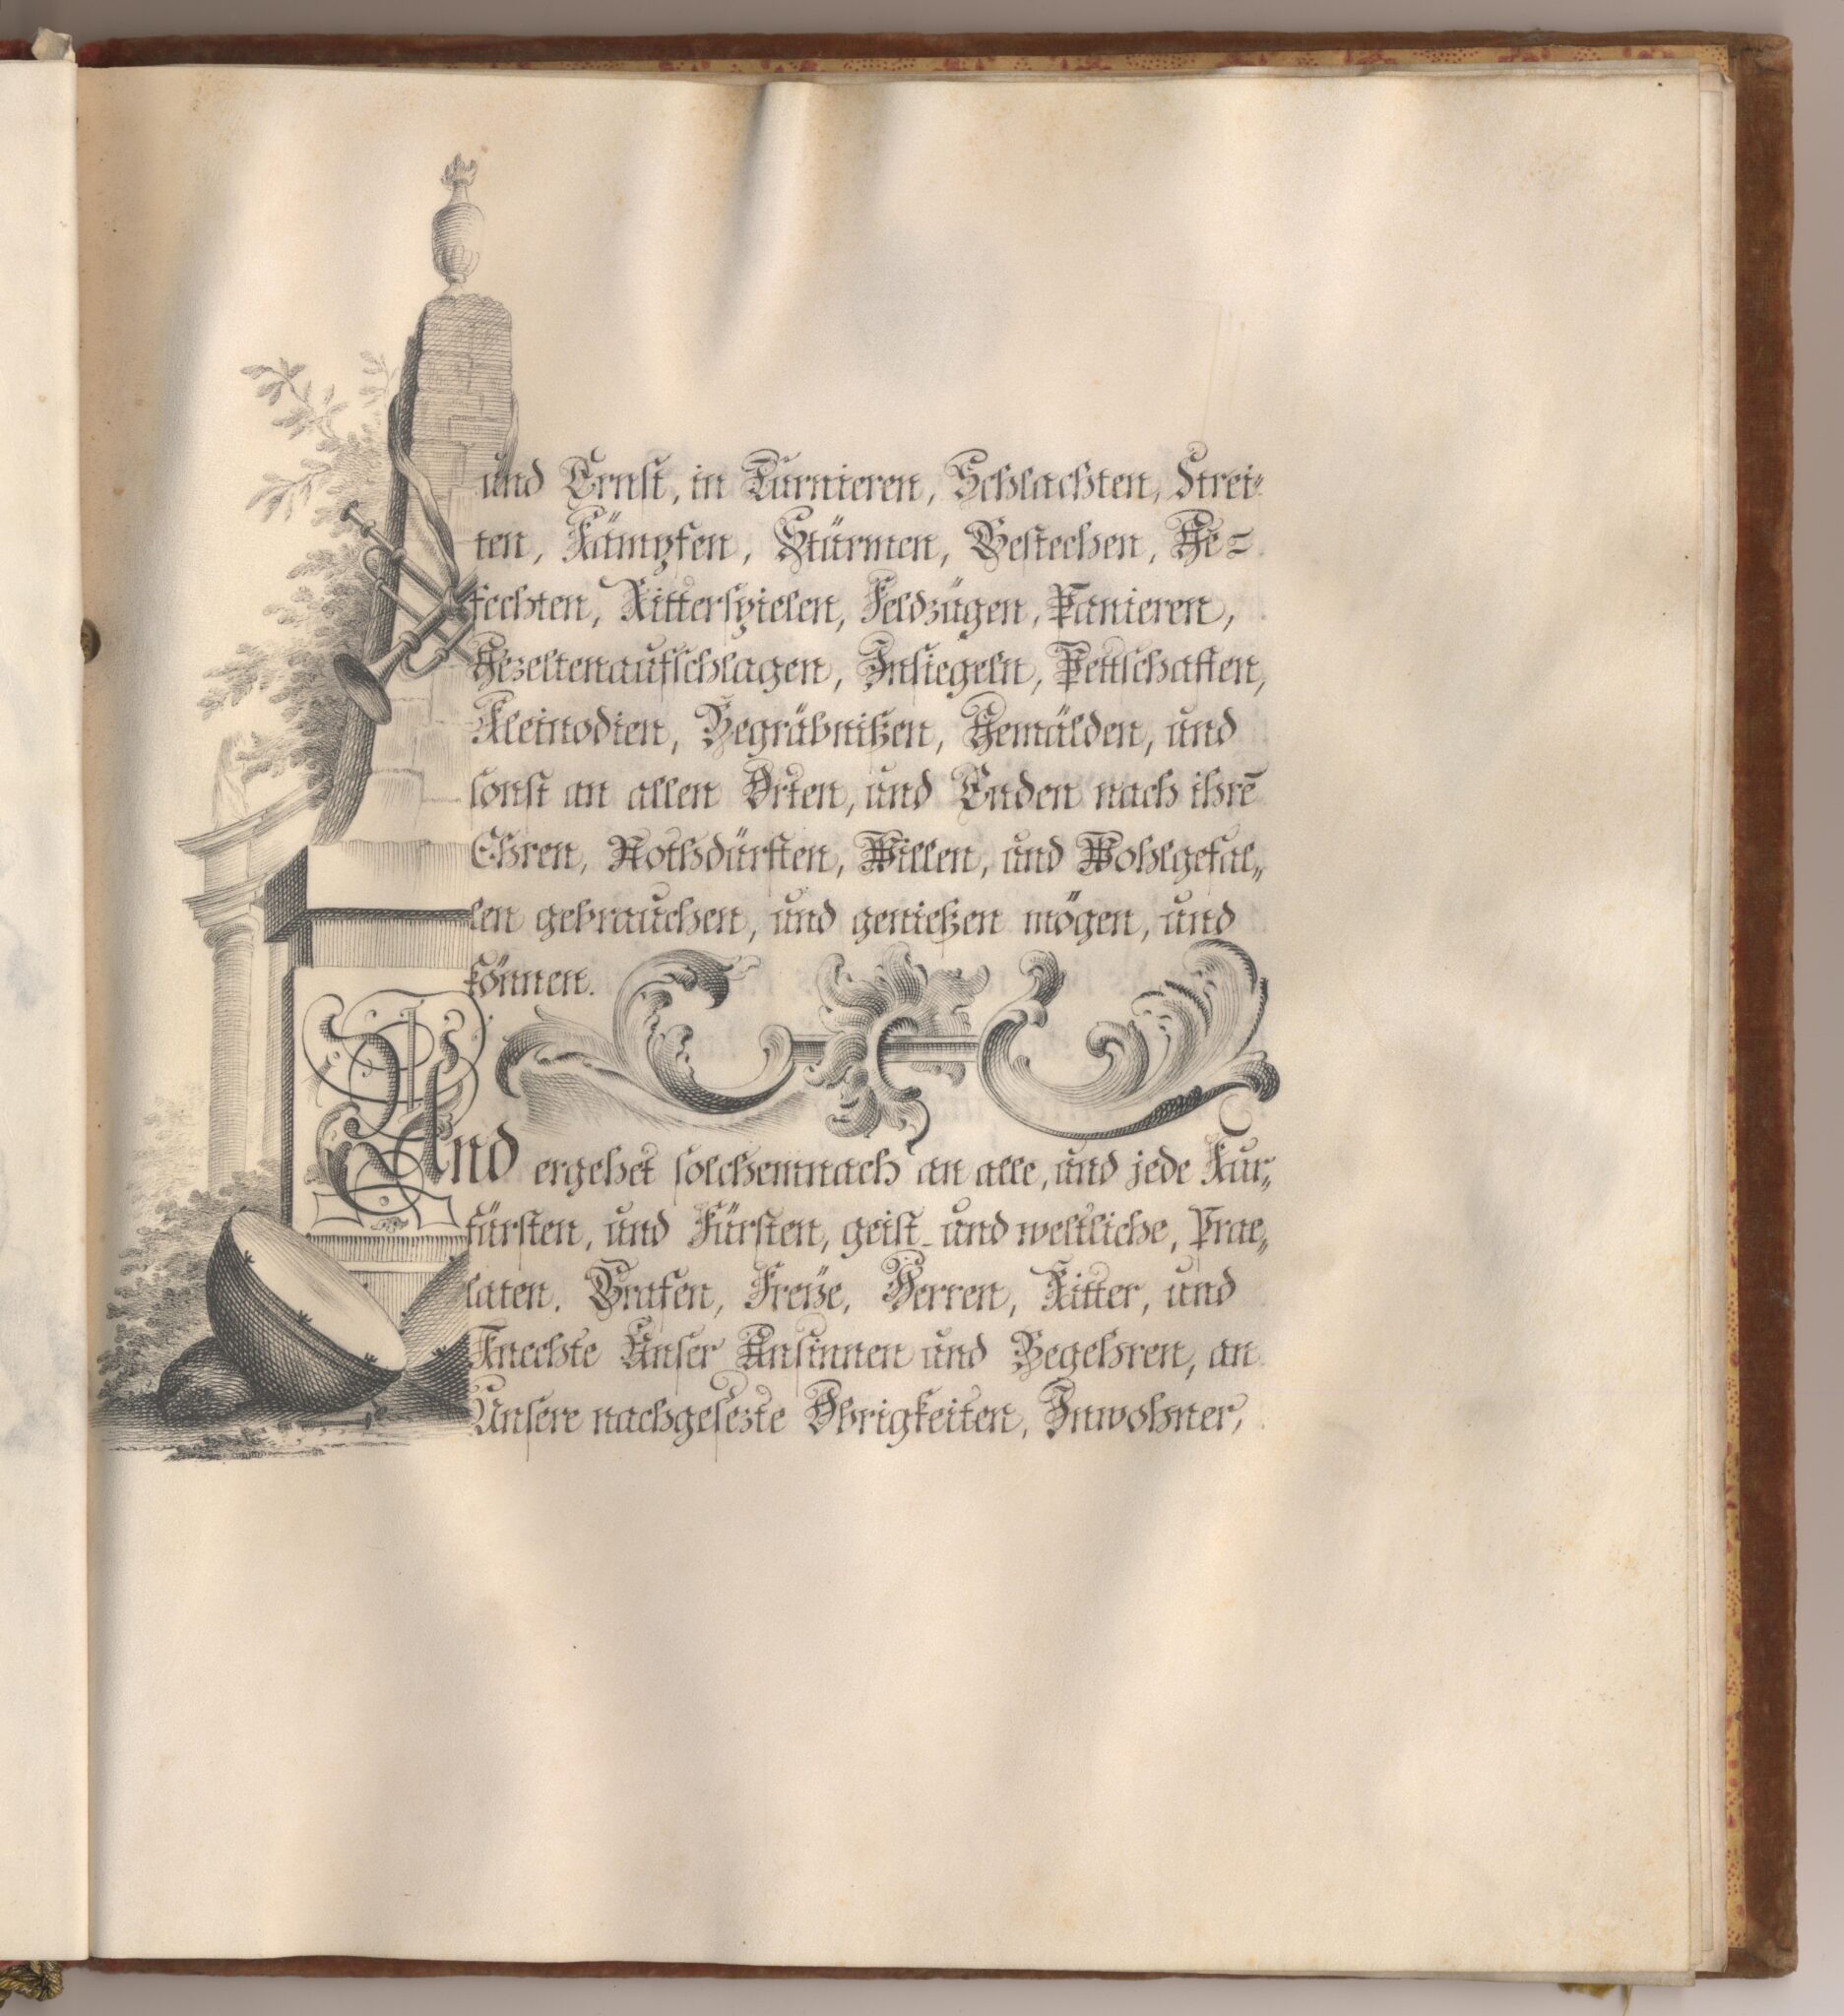 und Ernst, in Turnieren, Schlachten, Strei⸗
ten, Kämpfen, Stürmen, Bestechen, Ge⸗
fechten, Ritterspielen, Feldzügen, Panieren,
Gezeltenaufschlagen, Insiegeln, Pettschaften,
Kleinodien, Begräbnißen, Gemälden, und
sonst an allen Orten, und Enden nach ihrē
Ehren, Nothdürften, Willen, und Wohlgefal„
len gebrauchen, und genießen mögen, und
können.
Und ergehet solchemnach an alle, und jede Kur„
fürsten, und Fürsten, geist- und weltliche, Prae„
laten, Grafen, Freÿe, Herren, Ritter, und
Knechte Unser Ansinnen und Begehren, an
Unsere nachgesezte Obrigkeiten, Inwohner,